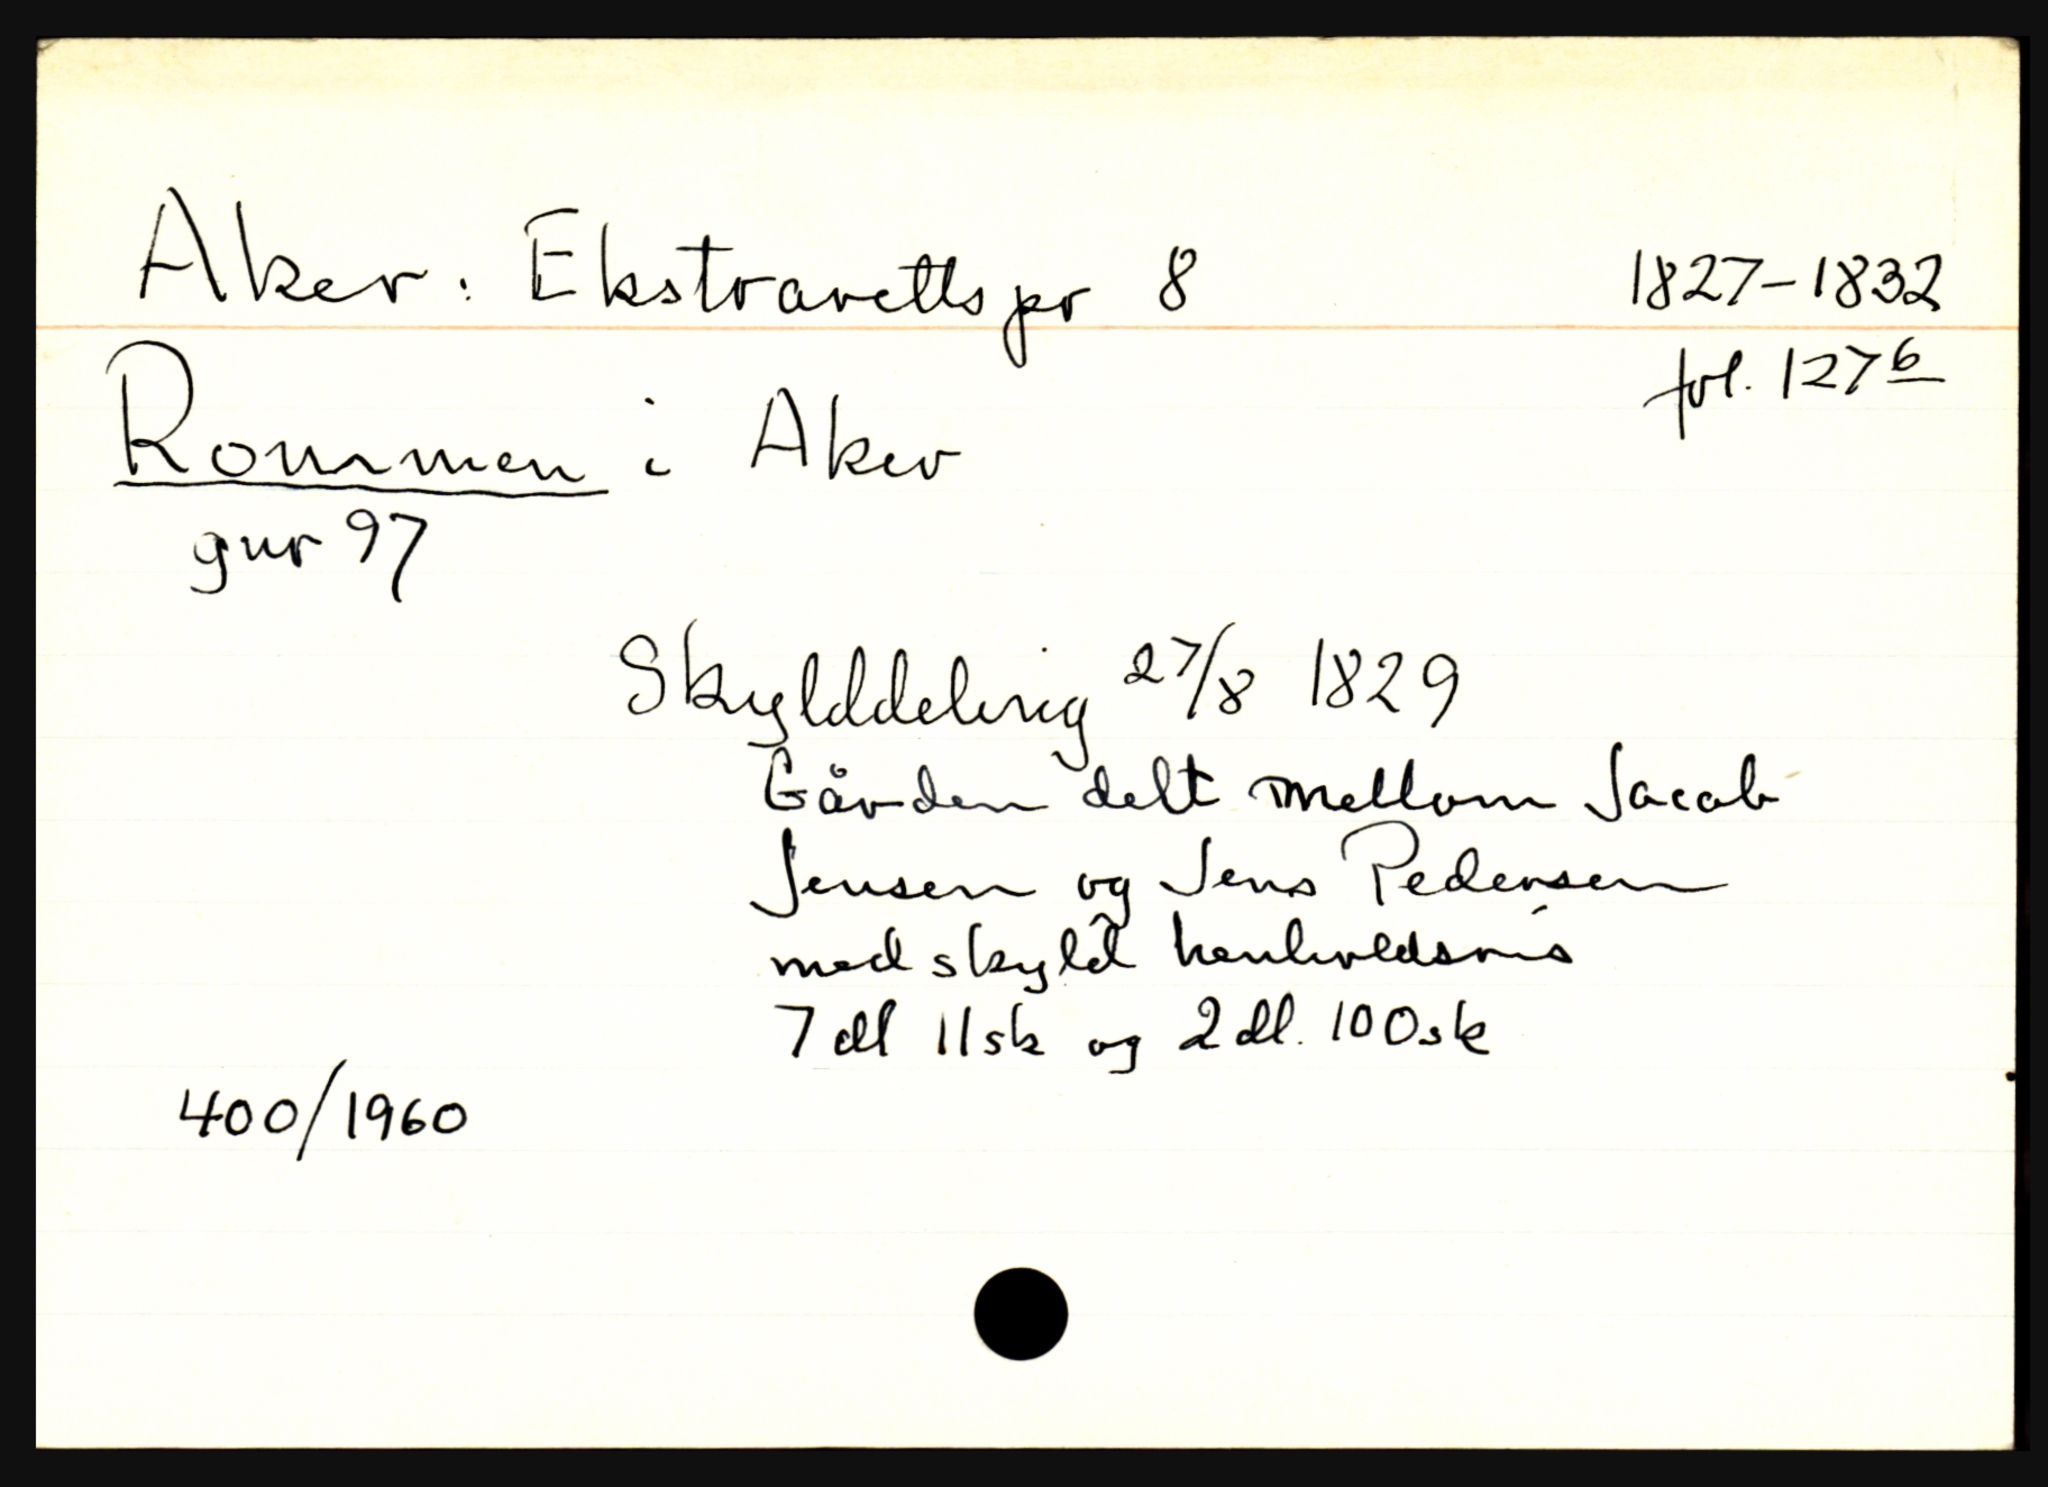 Aker: Ekstrarettspr 8 1827-1832
fol. 127b
Rommen i Aker
gnr 97
Skylddeling 27/8 1829
Gården delt mellom Jacob
Jensen og Jens Pedersen
med skyld henholdsvis
7 dl 11 sk og 2 dl. 100 sk
400/1960